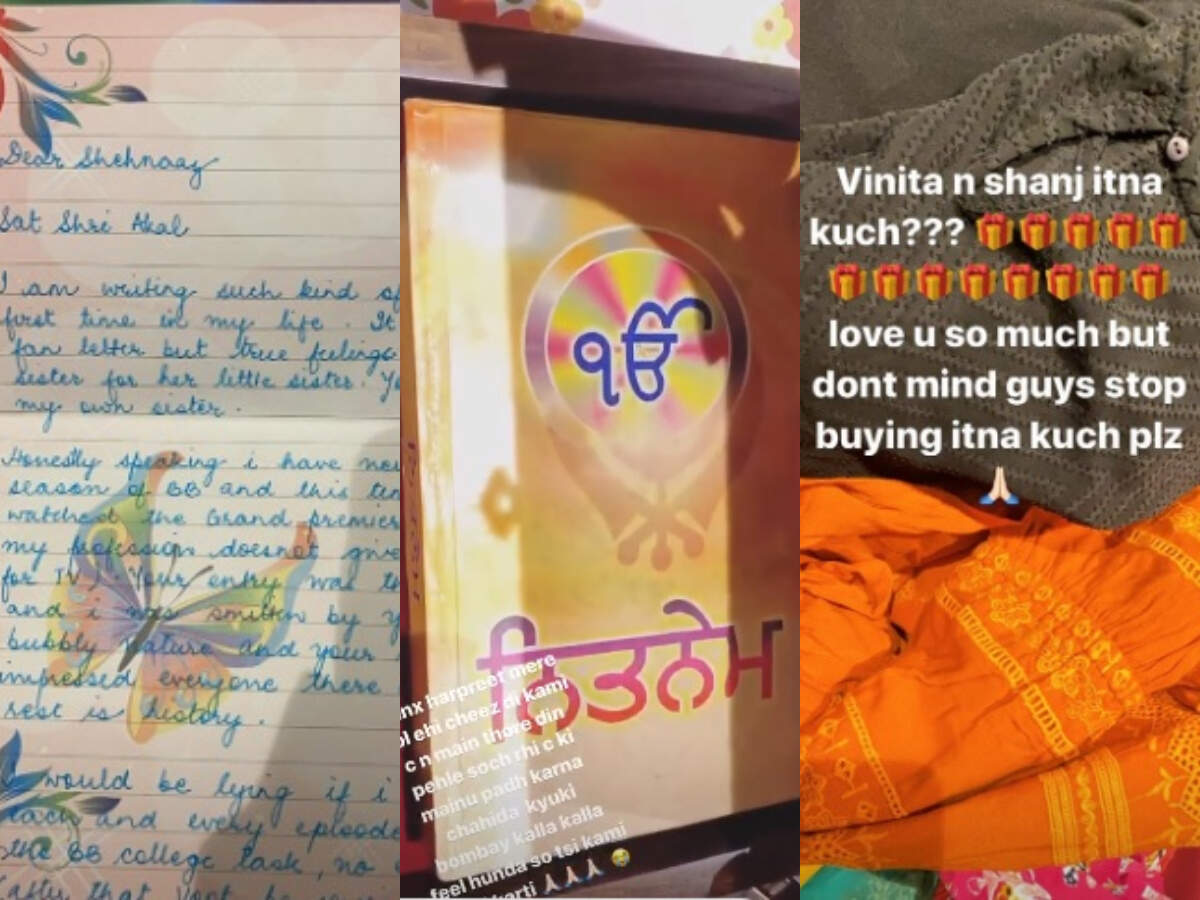 Dear Shehnaaz
Sat Shri Akal
I am writing such kind of
first time in my life. It
fan letter but true feelings
sister for her little sister.
my own sister.
Honestly speaking i have
season of BB and this
watched the Grand premier
my profession doesnot give
for TV). Your entry was
and i was smitten by
bubbly nature and your
impressed everyone there
rest is history.
I would be lying if i
each and every episode
the BB college task, no
ੴ
ਨਿਤਨੇਮ
harpreet mere
ehi cheez di kami
c n main thore din
pehle soch rhi c ki
mainu padh karna
chahida kyuki
bombay kalla kalla
feel hunda so tsi kami
🙏🏻🙏🏻🙏🏻 😭
Vinita n shanj itna
kuch??? 🎁🎁🎁🎁🎁
🎁🎁🎁🎁🎁🎁🎁🎁
love u so much but
dont mind guys stop
buying itna kuch plz
🙏🏻